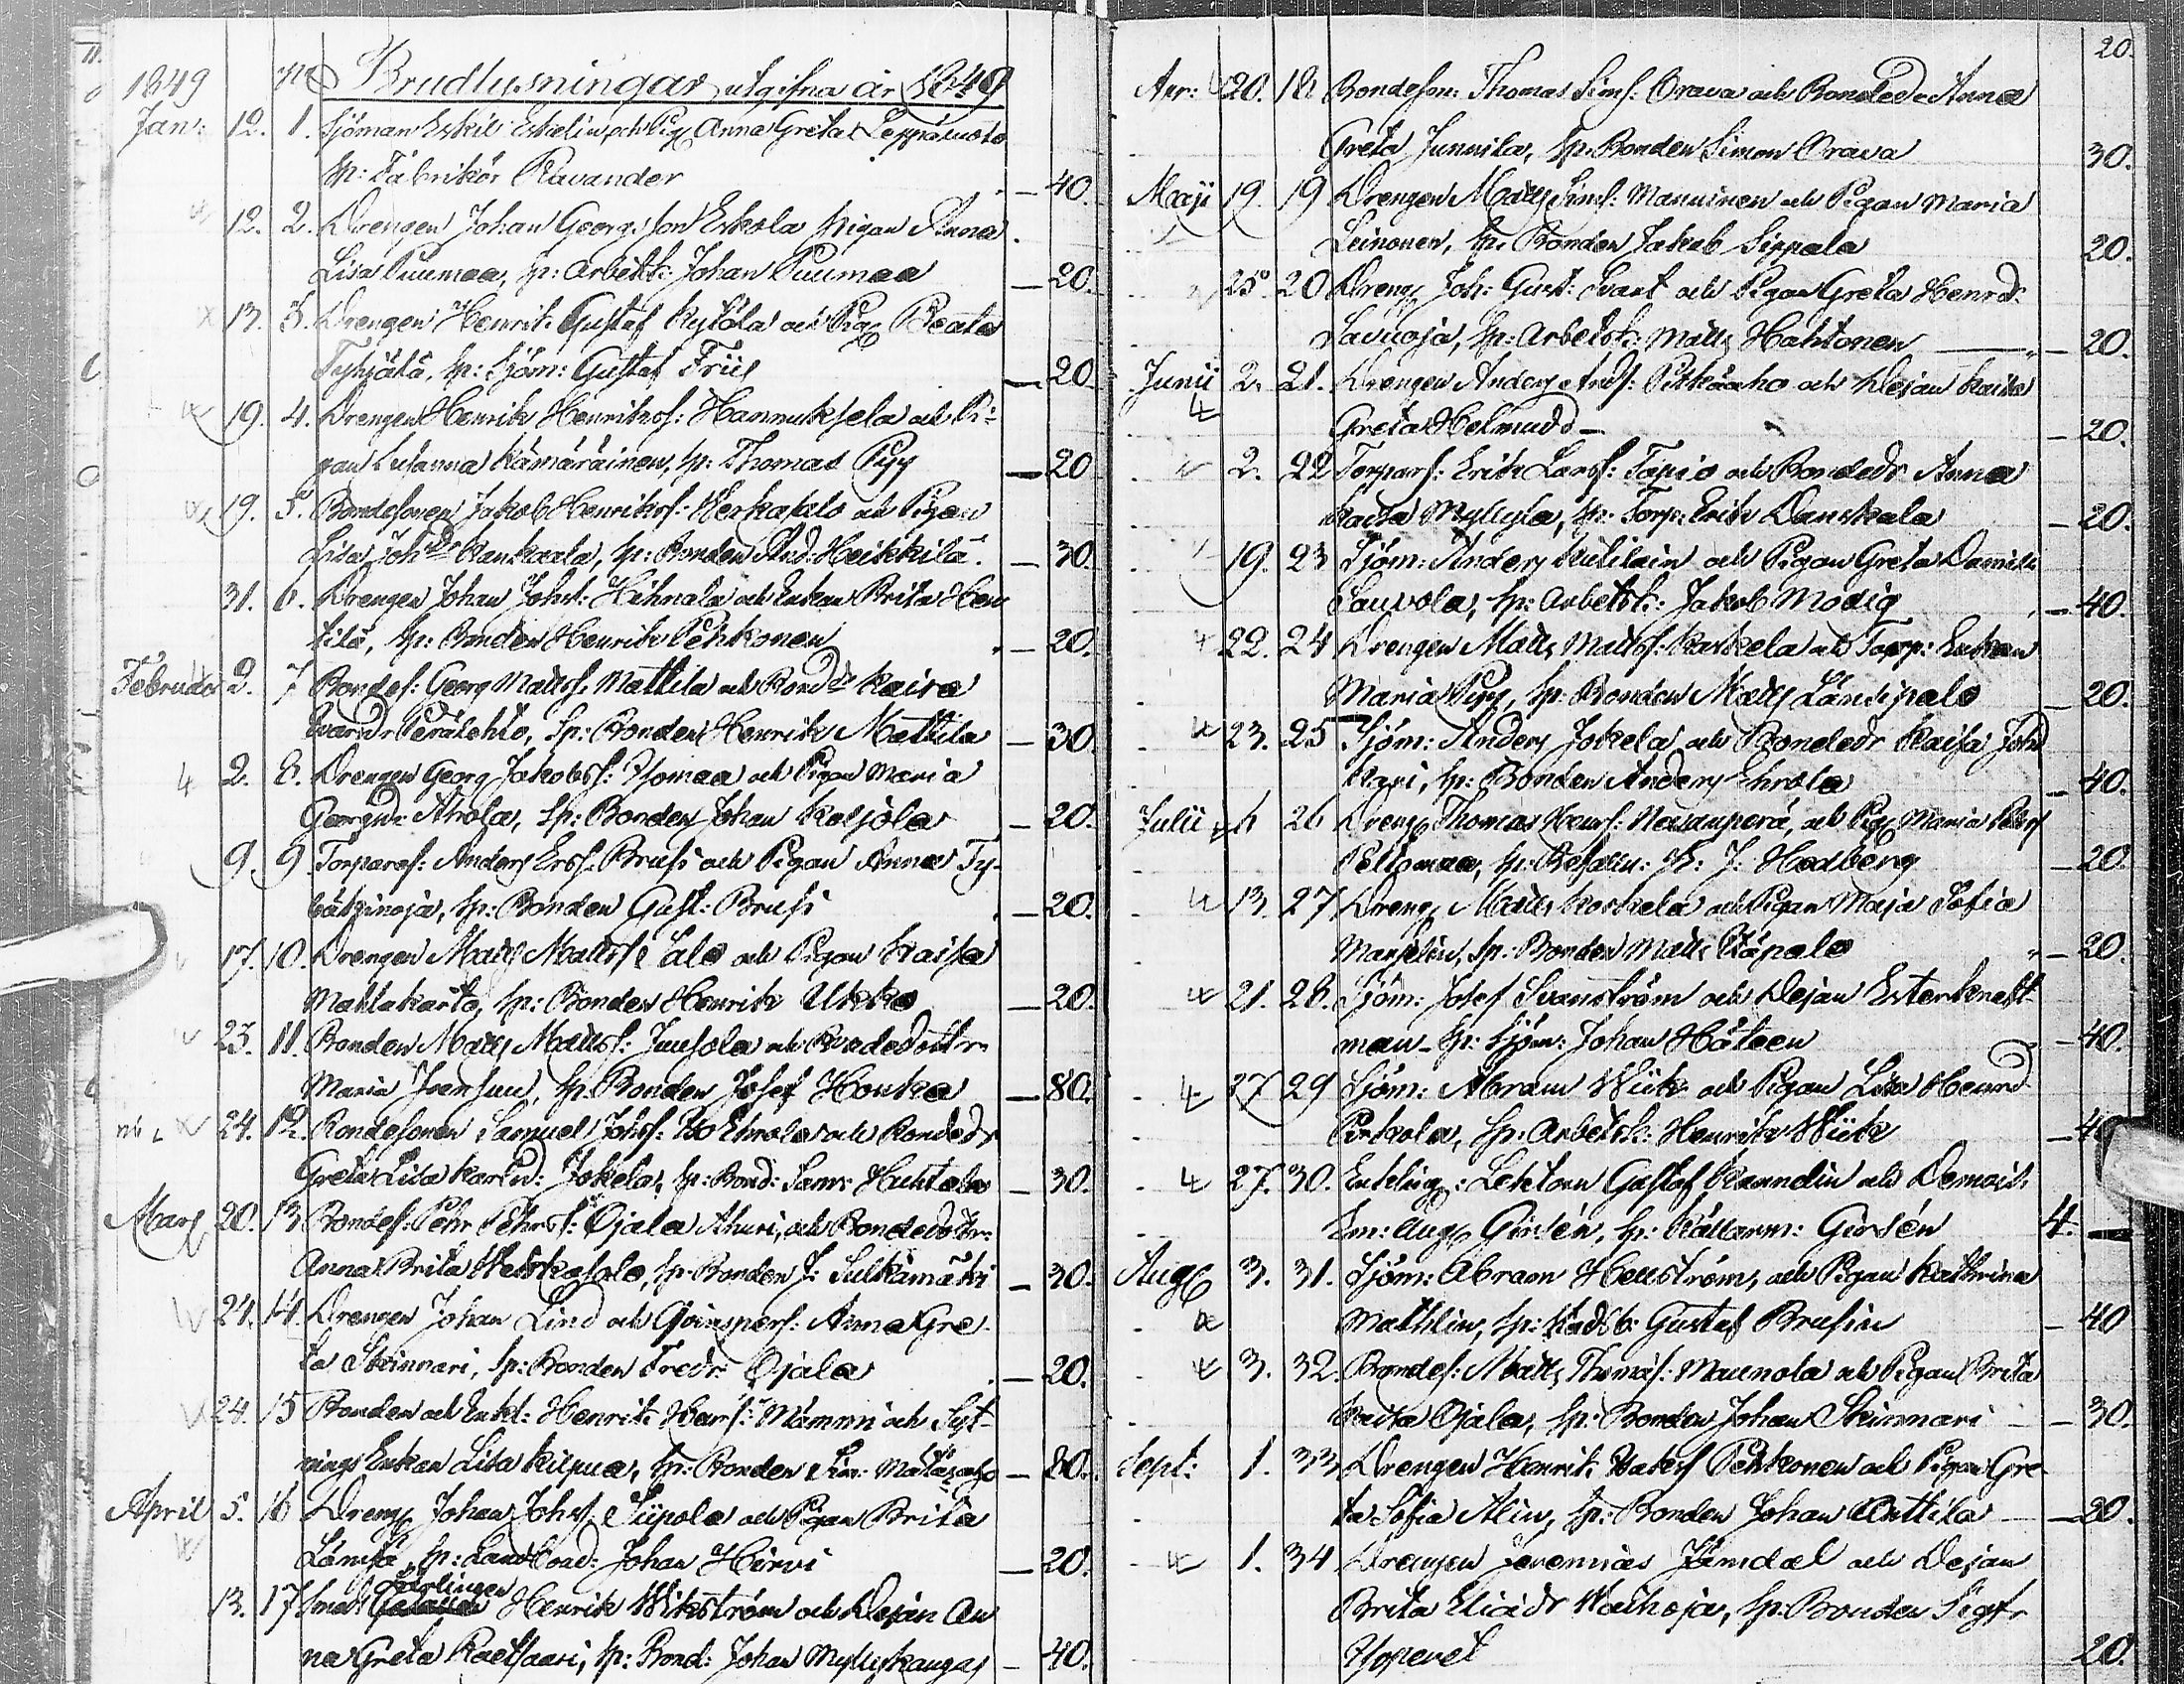 1849 No Brudlysningar utgifna år 1849
Jan: 12. 1. Sjöman Eskil Eskelin, och Pig Anna Greta Leppäluoto
sp: Fabrikör Ravander — 40.
12. 2. Drengen Johan Georgsson Eskola Pigan Anna
Lisa Puumaa, sp: Arbetsk: Johan Puumaa — 20.
13. 3. Drengen Henrik Gustaf Kytölä och Pig Beata
Tyhjälä, sp: Sjöm: Gustaf Friis — 20
19. 4. Drengen Henrik Henrikss: Hannuksela och Pi-
gan Susanna Kämäräinen, sp: Thomas Pyy — 20
19. 5. Bondesonen Jakob Henrikss: Verkasalo och Pigan
Lisa Johdr Kankaala, sp: Bonden And: Heikkilä. — 30.
31. 6. Drengen Johan Johss: Hihnala och Enkan Brita Hen
tilä, sp: Bonden Henrik Pehkonen — 20.
Februar 2. 7 Bondes: Georg Matts: Mattila och Bonddr Kaisa
Ivarsdr Perälehto, sp: Bonden Henrik Mattila — 30.
2. 8. Drengen Georg Jakobss: Ylomaa och Pigan Maria
Georgsdr Ahola, sp: Bonden Johan Karjola — 20.
9. 9 Torpares: Anders Erss: Brusi och Pigan Anna Ty-
sp: Bonden Gust: Brusi — 20.
17. 10. Drengen Matts Mattss: Salo och Pigan Kaisa
Mahlakarto, sp: Bonden Henrik Ukko — 20.
23. 11. Bonden Matts Mattss: Juusola och Bondedottr
Maria Joensuu, sp: Bonden Josef Honka — 80.
24. 12. Bondesonen Samuel Johss: Ehrola och Bondedr
Greta Lisa Karlsd: Jokela, sp: Bond: Sam: Huhtala — 30.
Mars 20. 13 Bondes: Pehr Pehrss: Ojala Ahuri, och Bondedottr:
Anna Brita Verkasalo, sp: Bonden J: Sulkamäki — 30.
24. 14. Drengen Johan Lind och Qvinspers: Anna Gre
ta Skinnari, sp: Bonden Fredr: Ojala — 20.
24. 15 Bonden och Enkl: Henrik Henrs: Mämmi och Syt-
nings Enkan Lisa Kilpua, sp: Bonden Sim: Mataraho — 80.
April 5. 16 Dreng Johan Johss. Siipola och Pigan Brita
Länsä, sp: Landbond: Johan Hirvi — 20.
Lärlingen
13. 17 Smeds Henrik Wikström och Dejan An
na Greta Raetsaari, sp: Bond: Johan Myllykangas — 40.
20.
Apr: 20. 18 Bondeson: Thomas Sims: Orava och Bondedr Anna
Greta Junnila, sp. Bonden Simon Orava 30.
Maji 19. 19 Drengen Matts Sims: Manninen och Pigan Maria
Leinonen, sp. Bonden Jakob Sippala 20.
25. 20 Dreng Joh: Gust: Svart och Pigan Greta Henrd:
Savuoja, sp: Arbetsk: Matts Hahtonen — 20.
Junii 2. 21. Drengen Anders Ands: Pitkäaho och Dejan Kaisa
Greta Helmudd — 20.
2. 22 Torpars: Erik Larss: Tapio och Bondedr Anna
Kaisa Myllylä, sp: Torp: Erik Danskala — 20.
19. 23 Sjöm: Anders Kutilain och Pigan Greta Daniels
Sauvola, sp: Arbetsk: Jakob Modig — 40.
22. 24 Drengen Matts Mattss: Karkela och Torp: Enkan
Maria Pyy, sp: Bonden Matts Länsipalo — 20.
23. 25 Sjöm: Anders Jokela och Bondedr Kaisa Johd
Kari, sp: Bonden Anders Ehrola — 40.
Julii 6 26 Dreng Thomas Henrs: Nevanperä, och Pig Maria Pehrs
Peltomaa, sp: J: Hedberg — 20.
13. 27 Dreng Matts Koskela och Pigan Maja Sofia
Marjelin, sp: Bonden Matts Räpälo — 20.
21. 28. Sjöm: Josef Svanström och Dejan Ester Knekt-
man sp: Sjöm: Johan Håteen — 40.
27 29 Sjöm: Abram Wiik och Pigan Lisa Henrd
Pirkola, sp: Arbetsk: Henrik Wiik — 40
27. 30. Enkling: Lektorn Gustaf Ranndin och Demois:
Em: Aug: Girsén, sp: Källarm: Girsén 4. —
Aug 3. 31. Sjöm: Abram Hellström, och Pigan Kathrina
Mathlin, sp: Rådsb: Gustaf Brusin — 40
3. 32. Bondes: Matts Thomas: Maunola och Pigan Brita
Kaisa Ojala, sp: Bonden Johan Skinnari — 30.
Sept: 1. 33 Drengen Henrik Isakss Pehkonen och Pigan Gre
ta Sofia Alin, sp: Bonden Johan Anttila — 20.
1. 34 Drengen Jeremias Jämdal och Dejan
Brita Eliædr Waihoja, sp: Bonden Sigfr
Yppevel 20.